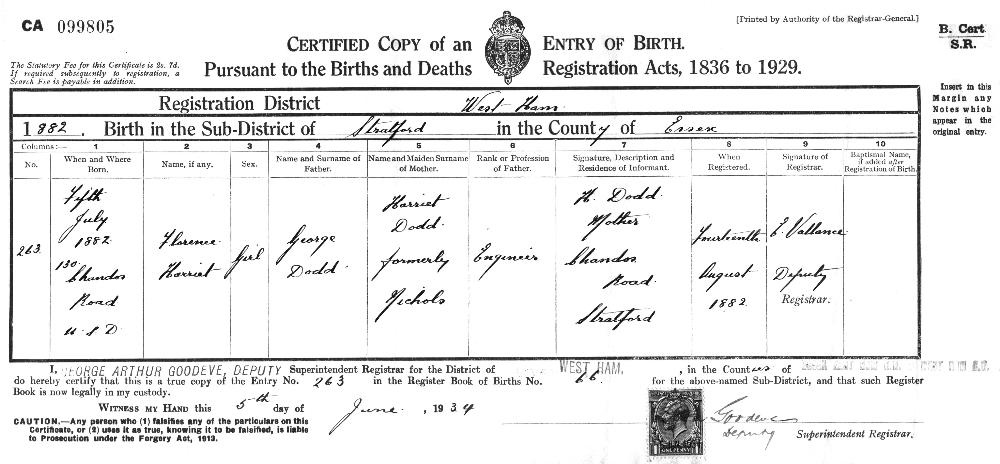 CA 099805
[Printed by Authority of the Registrar-General.]
B. Cert.
S.R.
CERTIFIED COPY of an ENTRY OF BIRTH.
The Statutory Fee for this Certificate is 2s. 7d.
If required subsequently to registration, a
Search Fee is payable in addition.
Pursuant to the Births and Deaths Registration Acts, 1836 to 1929.
Insert in this
Margin any
Notes which
appear in the
original entry.
Registration District West Ham
1882. Birth in the Sub-District of Stratford in the County of Essex
Columns:— 1 2 3 4 5 6 7 8 9 10
No.
When and Where
Born.
Name, if any.
Sex.
Name and Surname of
Father.
Name and Maiden Surname
of Mother.
Rank or Profession
of Father.
Signature, Description and
Residence of Informant.
When
Registered.
Signature of
Registrar.
Baptismal Name,
if added after
Registration of Birth.
263
Fifth
July
1882
130
Chandos
Road
U.S.D.
Florence
Harriet
Girl
George
Dodd
Harriet
Dodd
formerly
Nichols
Engineer
H. Dodd
Mother
Chandos
Road
Stratford
Fourteenth
August
1882
E. Vallance
Deputy
Registrar.
I, GEORGE ARTHUR GOODEVE, DEPUTY Superintendent Registrar for the District of WEST HAM. , in the Counties of
do hereby certify that this is a true copy of the Entry No. 263 in the Register Book of Births No. 66. for the above-named Sub-District, and that such Register
Book is now legally in my custody.
WITNESS MY HAND this 5th day of June, 1934
CAUTION.—Any person who (1) falsifies any of the particulars on this
Certificate, or (2) uses it as true, knowing it to be falsified, is liable
to Prosecution under the Forgery Act, 1913.
ONE PENNY
Goodeve
Deputy Superintendent Registrar.